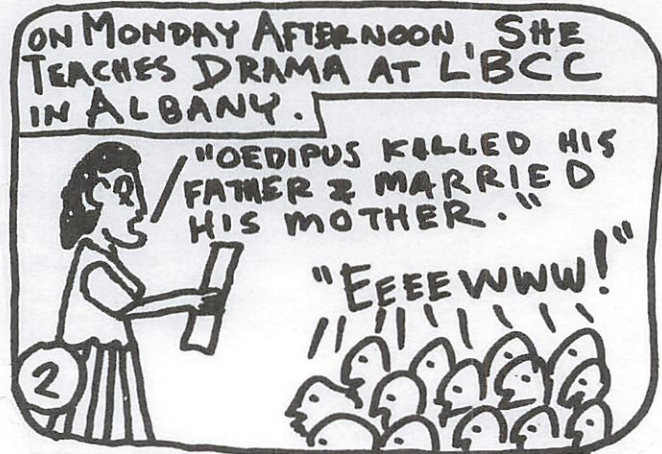 ON MONDAY AFTERNOON, SHE
TEACHES DRAMA AT L'BCC
IN ALBANY.
"OEDIPUS KILLED HIS
FATHER & MARRIED
HIS MOTHER."
"EEEEWWW!"
2